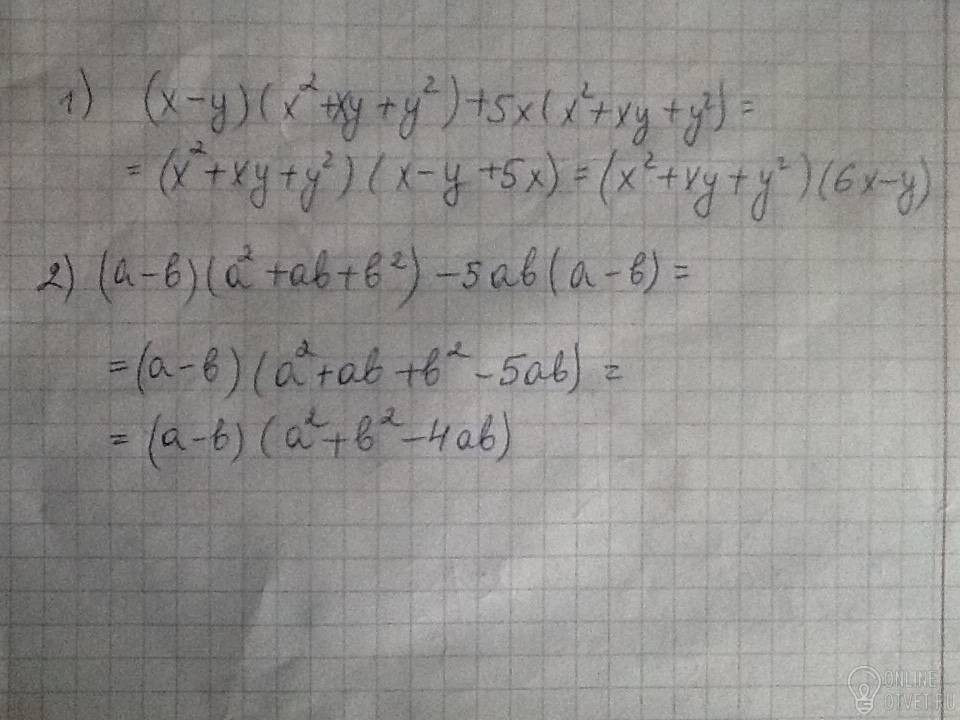 1) (x-y)(x²+xy+y²)+5x(x²+xy+y²)=
=(x²+xy+y²)(x-y+5x)=(x²+xy+y²)(6x-y)
2) (a-в)(a²+aв+в²)-5aв(a-в)=
=(a-в)(a²+aв+в²-5aв)=
=(a-в)(a²+в²-4aв)
ONLINE
OTVET.RU